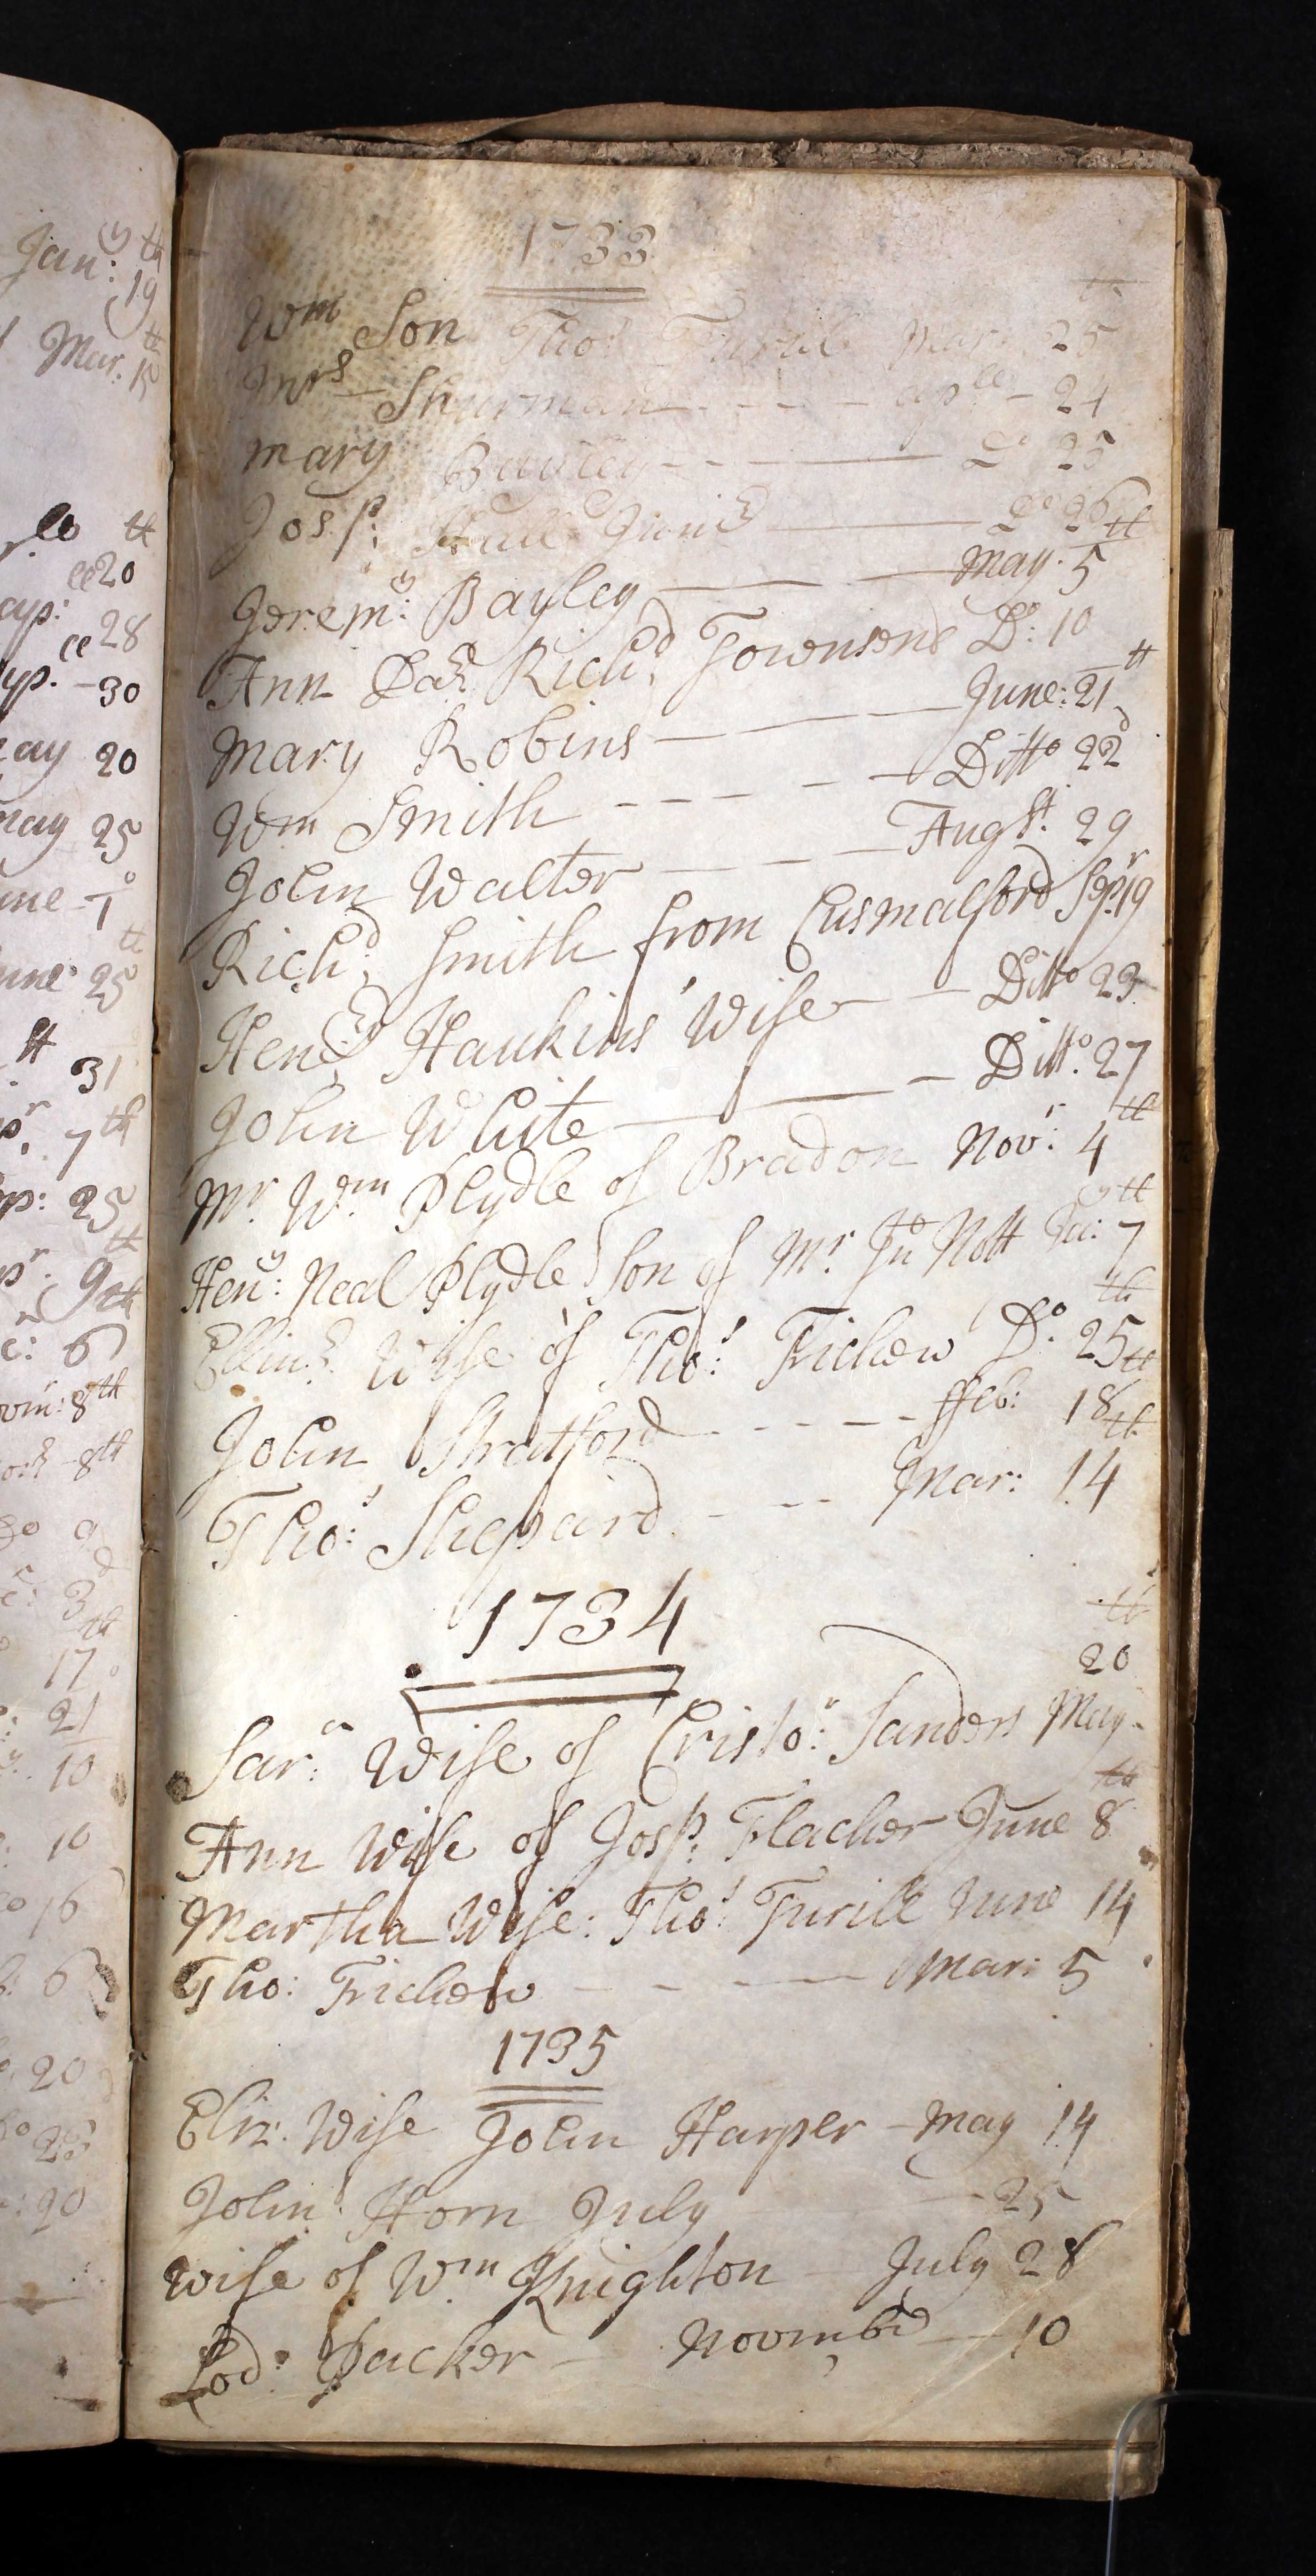 Jan:y 19th
Mar. 15th
20
ap: 28
ap. - 30
may 20
may 25
une 1o
une 25th
31
7th
25
9th
6
8th
8th
3d
17th
21
10
10
16
6
20
20
1733
Wm Son Thos: Turile Mar: 25th
Mrs Shurman - - - - apll - 24
Mary Bayley - - Do 25
Josp: Hall Junr Do 26
Jerem:y Bayley May. 5th
Ann Dar Richd Townsend Do: 10
Mary Robins June: 21th
Wm Smith - - - - - Ditto 22d
John Walter Augst. 29
Richd: Smith from Cusmalford Sepr. 19
Heny Haukins' Wife - Ditto 23
John White Ditto. 27
Mr. Wm Plydle of Bradon Nov:r 4th
Hen:y Neal Plydle Son of Mr. Jno Nott Ja:y 7th
Ellinr Wife of Tho:s Frichew Do. 25th
John Stratford - - - - ffeb: 18th
Tho:s Shepard - - - Mar: 14th
1734
20th
Sar:a Wife of Cristo:r Sanders May.
Ann Wife of Josp. Flacher June 8th
Martha Wife: Tho:s Turile June 14
Tho: Frichew - - - Mar: 5
1735
Eliz. Wife John Harper - May 14
John Horn July - 25
Wife of Wm Knighton - July 28
Lod: Packer - Novmbr - 10